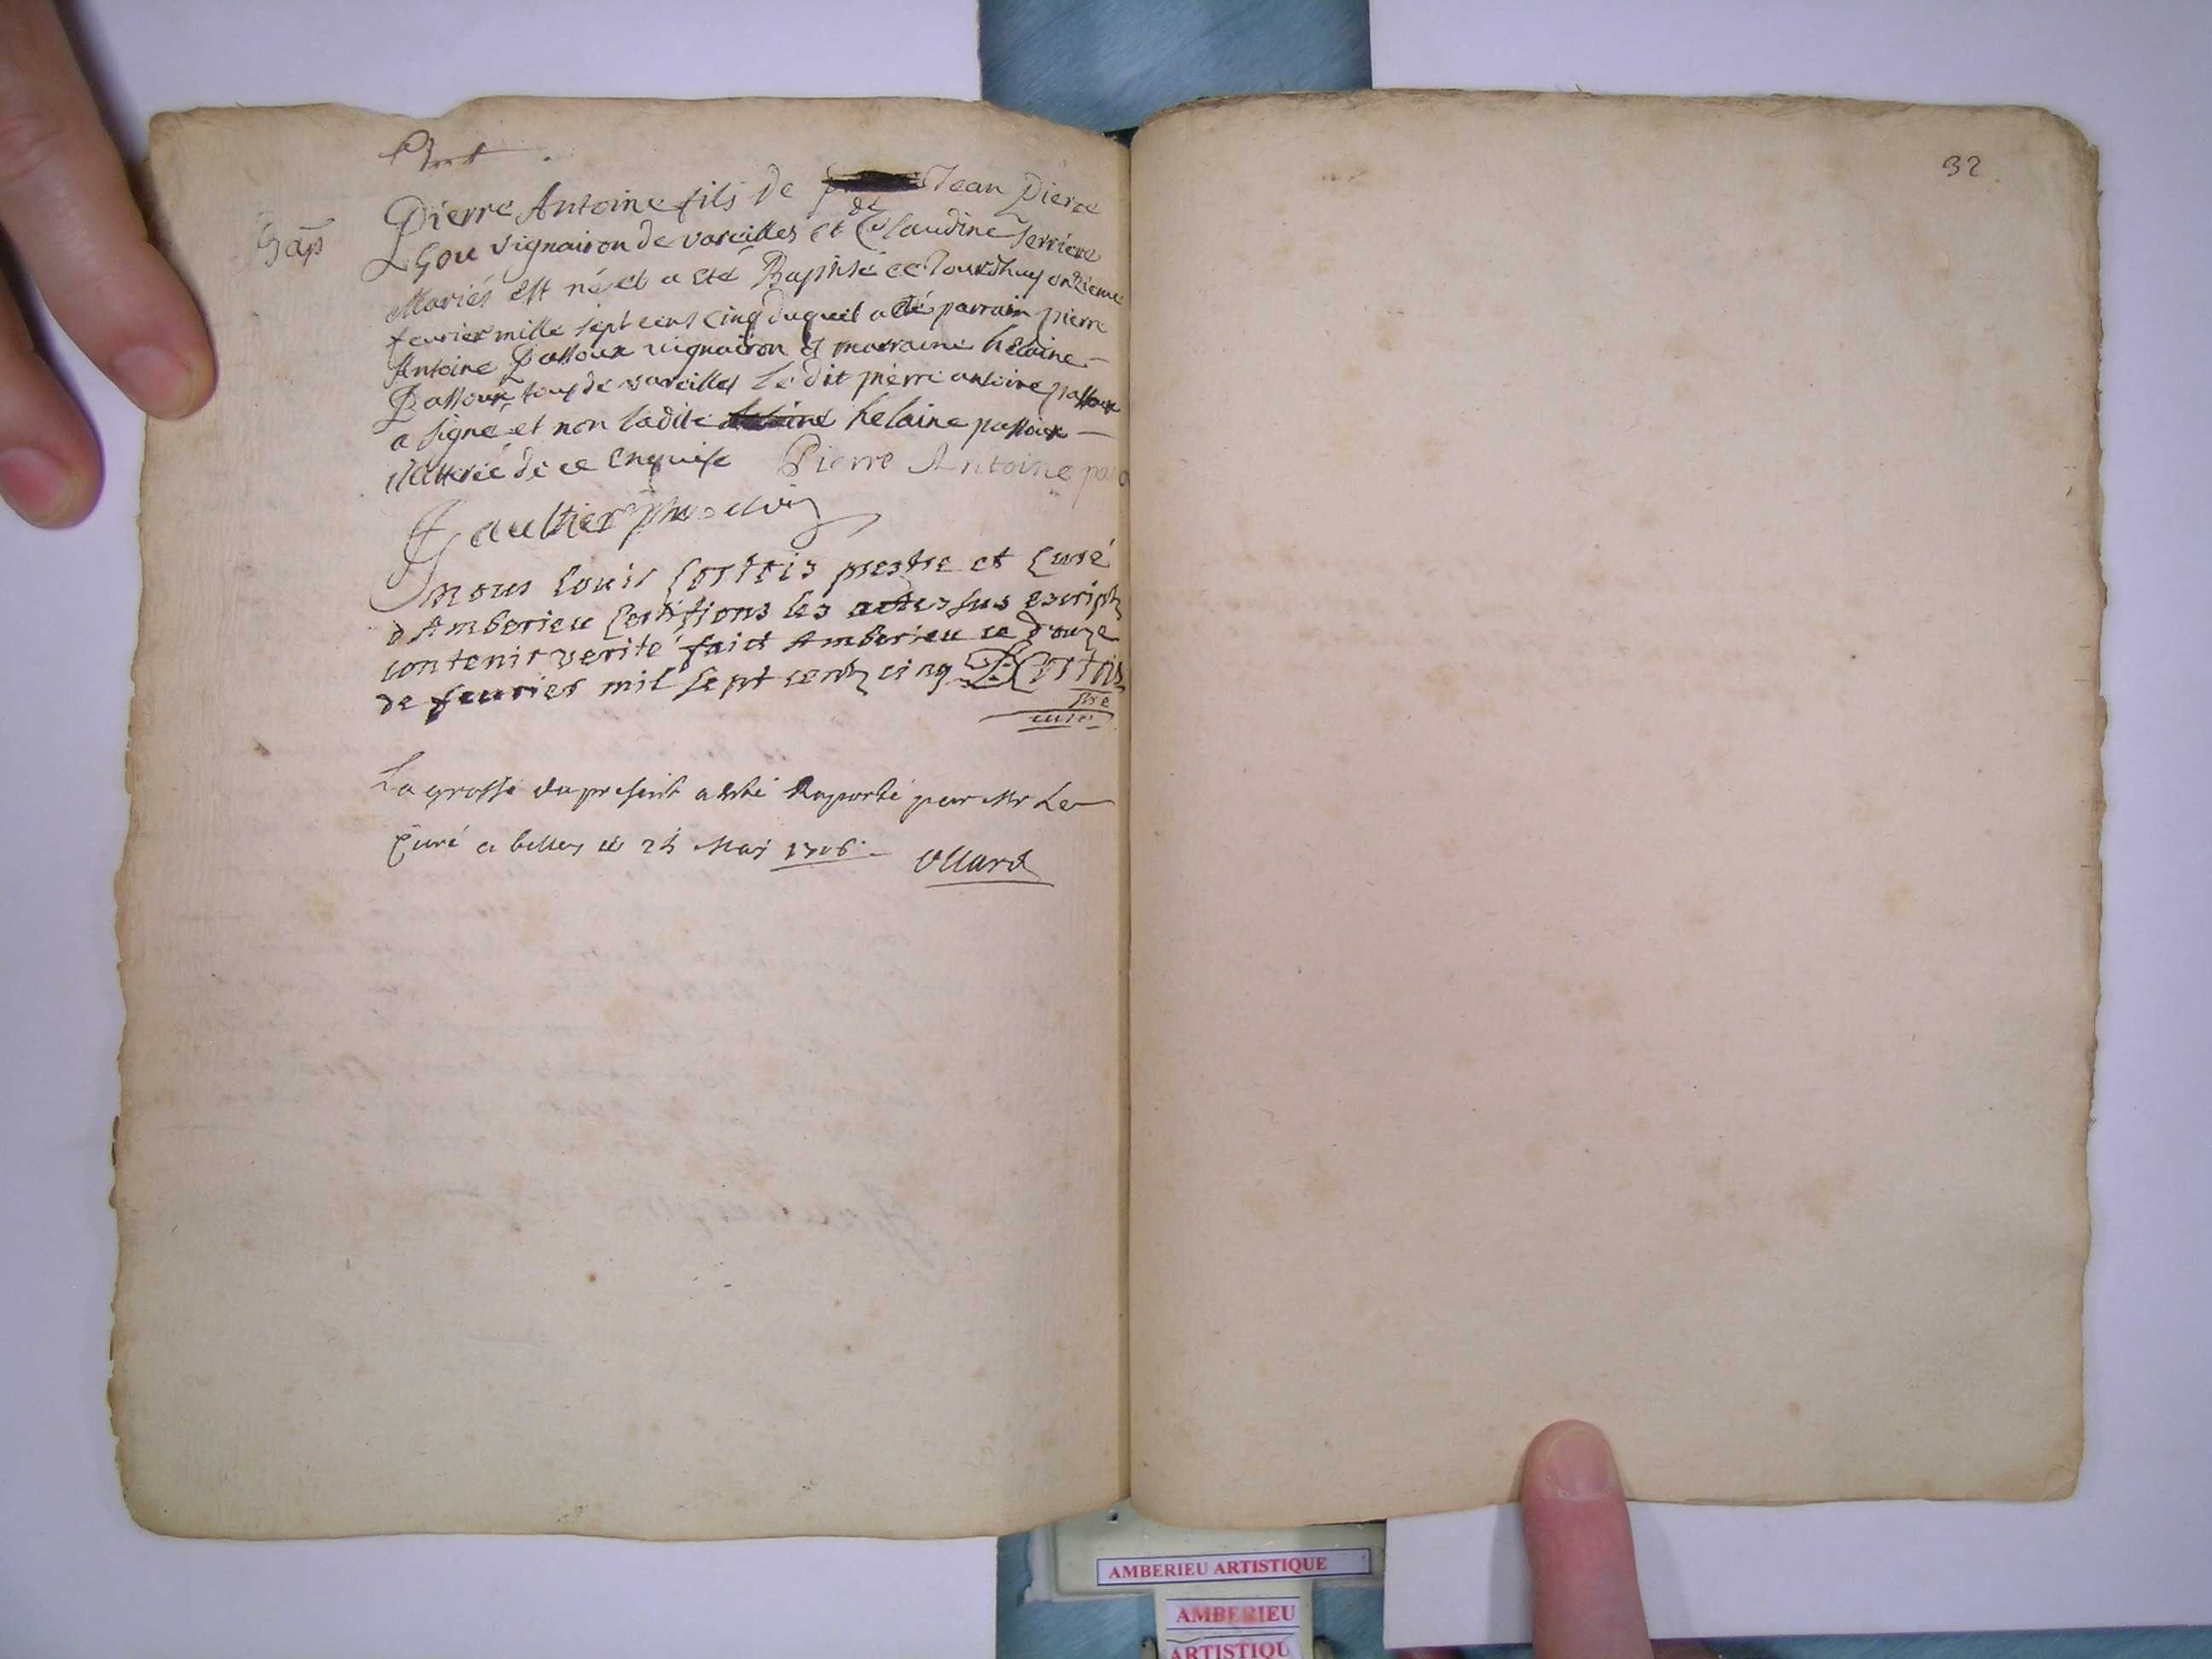 Bap
Pierre Antoine fils de Jean Pierre
Gou vignairon de vareilles et de Claudine Serriere
Mariés est né et a eté Baptisé ce Jourdhuy onzieme
fevrier mille sept cens cinq duquel a eté parrain pierre
Antoine Passoux vignairon et marraine helaine
Passoux tous de vareilles Le dit pierre antoine passoux
a signé et non ladite helaine passoux
illitterée de ce enquise Pierre Antoine
Gaultier
nous Louis Cortois prestre et Curé
d'Amberieu Certifions les actes sus escripts
contenir verité faict Amberieu ce douze
de feuvrier mil sept centz cinq L Cortois
ptre
curé
La grosse du present a esté Raporté par Mr Le
Curé a belley le Mai 1706
Ollard
32
AMBERIEU ARTISTIQUE
AMBERIEU
ARTISTIQU